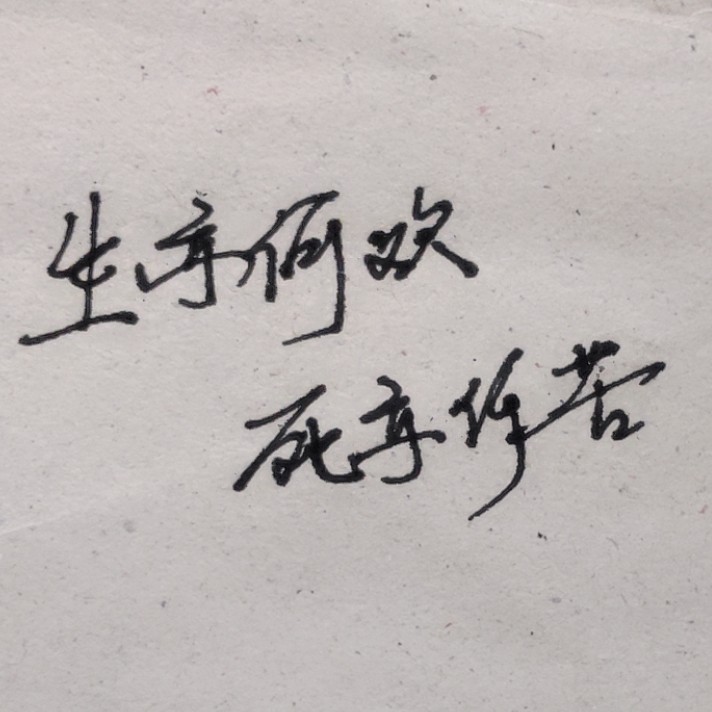 生亦何欢
死亦何苦